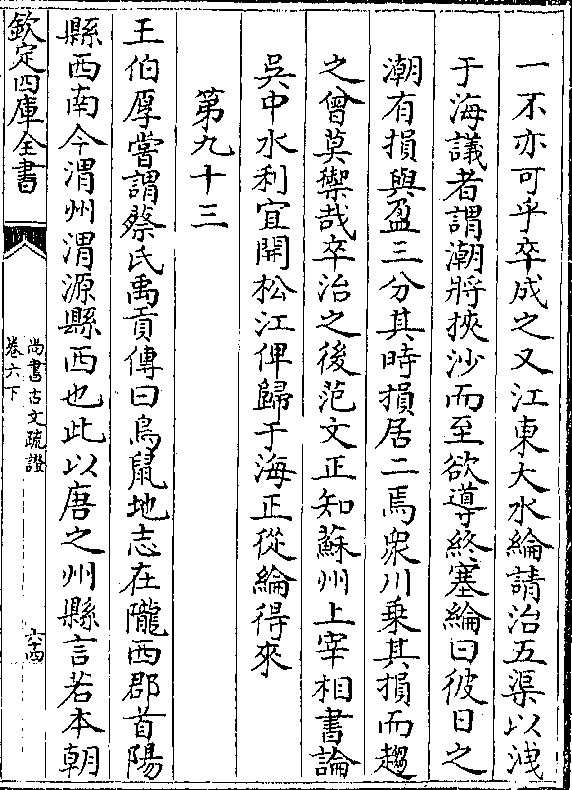 一不亦可乎卒成之又江東大水綸請治五渠以洩
于海議者謂潮將挾沙而至欲導終塞綸曰彼日之
潮有損與盈三分其時損居二焉衆川乗其損而趨
之曾莫禦哉卒治之後范文正知蘇州上宰相書論
吳中水利宜開松江俾歸于海正從綸得來
第九十三
王伯厚嘗謂蔡氏禹貢傳曰鳥鼠地志在隴西郡首陽
縣西南今渭州渭源縣西也此以唐之州縣言若本朝
欽定四庫全書
尚書古文疏證
卷六下
六十四